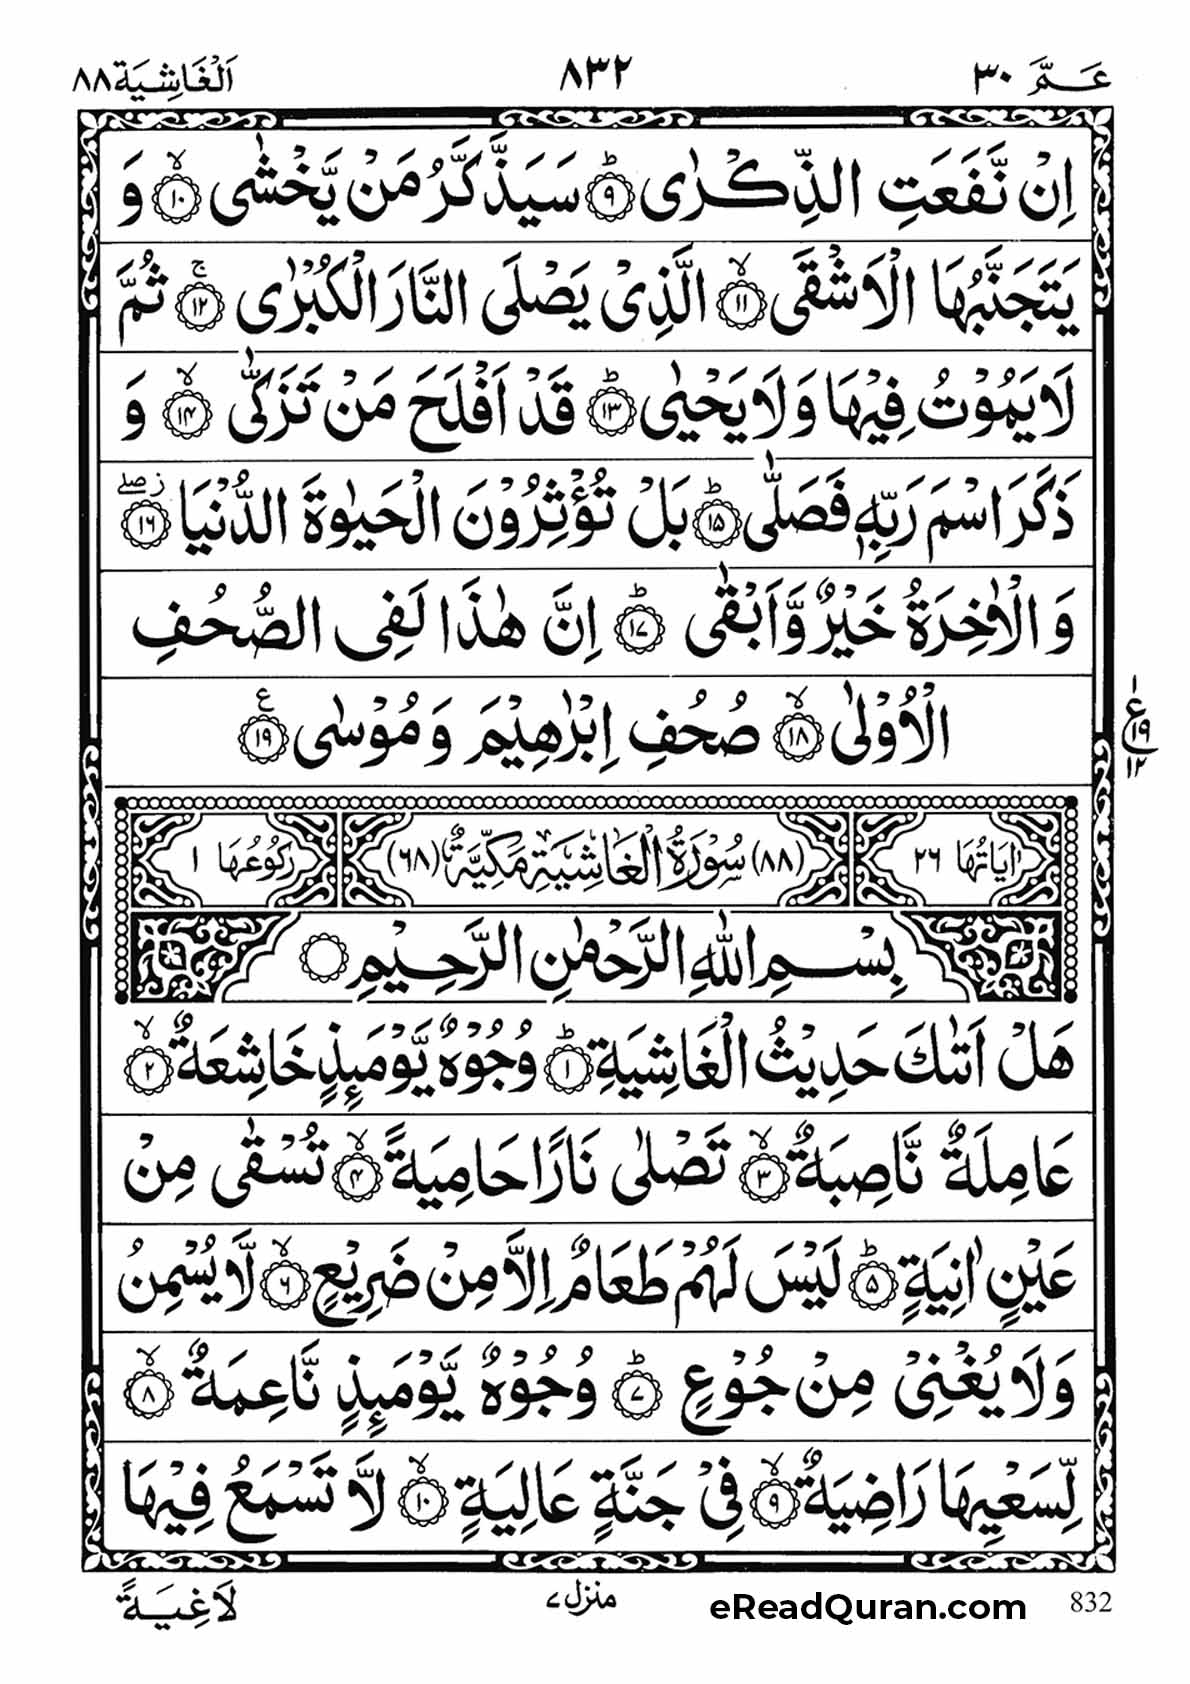 عَـمَّ ٣٠ ٨٣٢ اَلْغَاشِيَة ٨٨
اِنْ نَّفَعَتِ الذِّكْرٰى ؕ‏ ﴿۹﴾ سَيَذَّكَّرُ مَنْ يَّخْشٰى ۙ‏ ﴿۱۰﴾ وَ
يَتَجَنَّبُهَا الْاَشْقَى ۙ‏ ﴿۱۱﴾ الَّذِىْ يَصْلَى النَّارَ الْكُبْرٰى‌ ۚ‏ ﴿۱۲﴾ ثُمَّ
لَا يَمُوْتُ فِيْهَا وَلَا يَحْيٰى ؕ‏ ﴿۱۳﴾ قَدْ اَفْلَحَ مَنْ تَزَكّٰى ۙ‏ ﴿۱۴﴾ وَ
ذَكَرَ اسْمَ رَبِّهٖ فَصَلّٰى‌ ؕ‏ ﴿۱۵﴾ بَلْ تُؤْثِرُوْنَ الْحَيٰوةَ الدُّنْيَا ۖ ز ‏ ﴿۱۶﴾
وَالْاٰخِرَةُ خَيْرٌ وَّ اَبْقٰىؕ‏ ﴿۱۷﴾ اِنَّ هٰذَا لَفِى الصُّحُفِ
الْاُوْلٰىۙ‏ ﴿۱۸﴾ صُحُفِ اِبْرٰهِيْمَ وَمُوْسٰى ‏ ﴿۱۹﴾ ع
ع ١ ١٩ ١٢
اٰيَاتُهَا ٢٦ (٨٨) سُوْرَةُ الْغَاشِيَةِ مَكِّيَّةٌ (٦٨) رَكُوْعُهَا ١
بِسْمِ اللهِ الرَّحْمٰنِ الرَّحِيْمِ
هَلْ اَتٰٮكَ حَدِيْثُ الْغَاشِيَةِ ؕ‏ ﴿۱﴾ وُجُوْهٌ يَّوْمَٮِٕذٍ خَاشِعَةٌ ۙ‏ ﴿۲﴾
عَامِلَةٌ نَّاصِبَةٌ ۙ‏ ﴿۳﴾ تَصْلٰى نَارًا حَامِيَةً ۙ‏ ﴿۴﴾ تُسْقٰى مِنْ
عَيْنٍ اٰنِيَةٍؕ‏ ﴿۵﴾ لَيْسَ لَهُمْ طَعَامٌ اِلَّا مِنْ ضَرِيْعٍۙ‏ ﴿۶﴾ لَّا يُسْمِنُ
وَلَا يُغْنِىْ مِنْ جُوْعٍؕ‏ ﴿۷﴾ وُجُوْهٌ يَّوْمَٮِٕذٍ نَّاعِمَةٌ ۙ‏ ﴿۸﴾
لِّسَعْيِهَا رَاضِيَةٌ ۙ‏ ﴿۹﴾ فِىْ جَنَّةٍ عَالِيَةٍۙ‏ ﴿۱۰﴾ لَّا تَسْمَعُ فِيْهَا
لَاغِيَـةً منزل ٧ eReadQuran.com 832